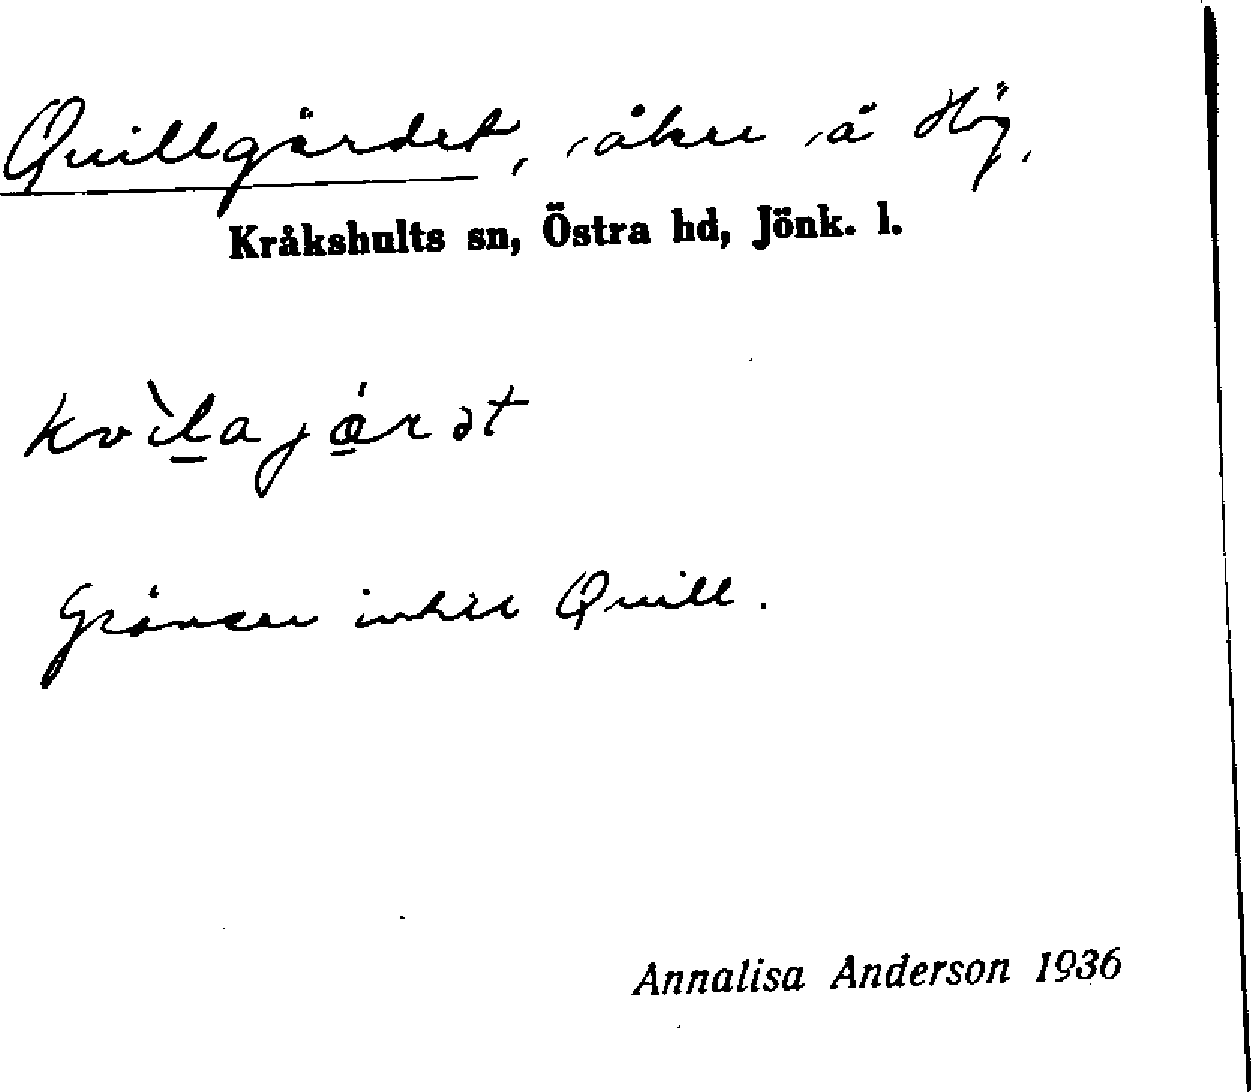 Quillgärdet, åker å Hög.
Kråkshults sn, Östra hd, Jönk. l.
kvìlajárət
Gränsar intill Quill.
Annalisa Anderson 1936